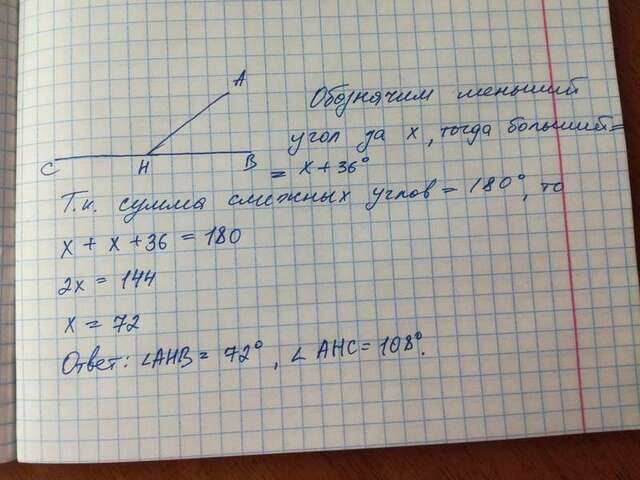 A
C
H
B
Обозначим меньший
угол за x, тогда больший =
= x + 36°
Т.к. сумма смежных углов = 180°, то
x + x + 36 = 180
2x = 144
x = 72
Ответ: ∠AHB = 72°, ∠AHC = 108°.